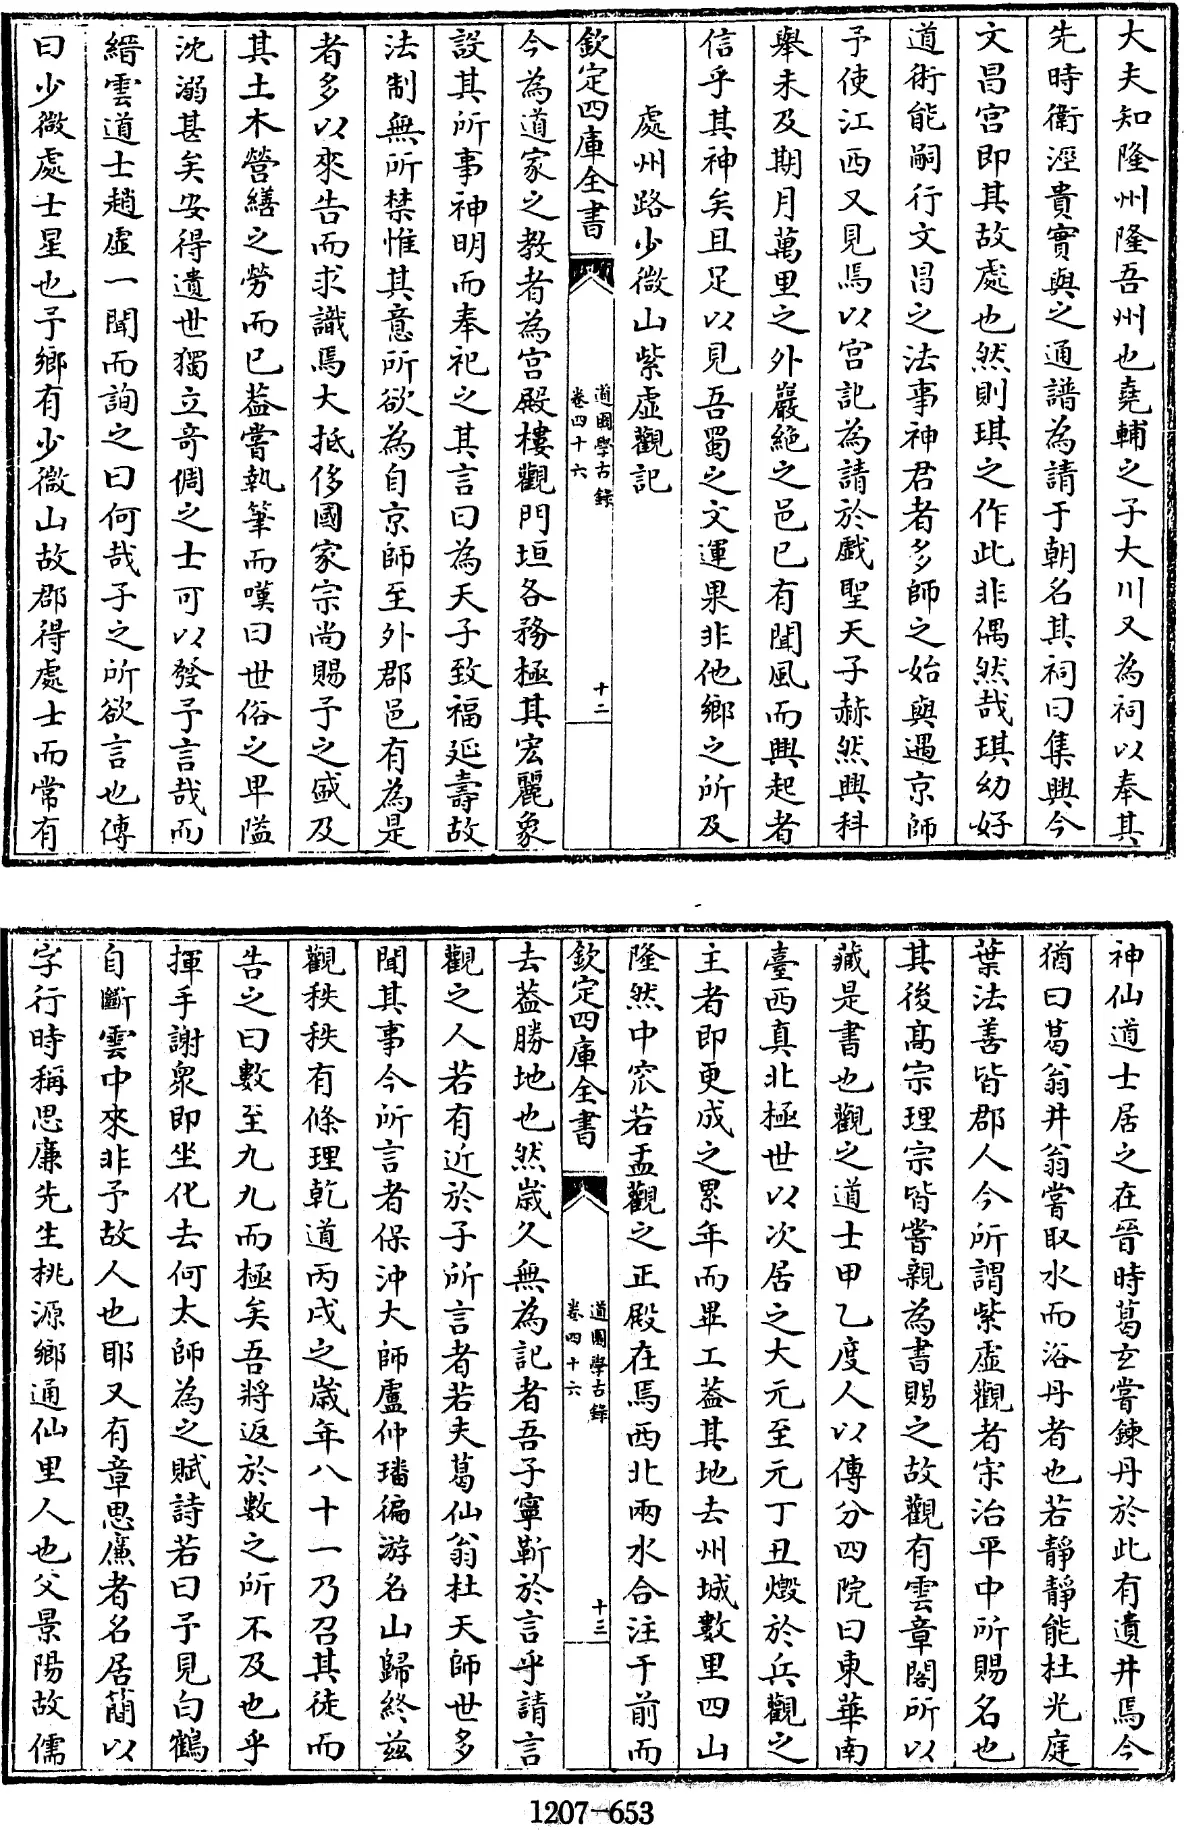 大夫知隆州隆吾州也堯輔之子大川又為祠以奉其
先時衛涇貴實與之通譜為請于朝名其祠曰集興今
文昌宫即其故處也然則琪之作此非偶然哉琪幼好
道術能嗣行文昌之法事神君者多師之始與遇京師
予使江西又見焉以宫記為請於戲聖天子赫然興科
舉未及期月萬里之外巖絶之邑已有聞風而興起者
信乎其神矣且足以見吾蜀之文運果非他鄉之所及
處州路少微山紫虚觀記
欽定四庫全書
道園學古録
卷四十六
十二
今為道家之教者為宫殿樓觀門垣各務極其宏麗象
設其所事神明而奉祀之其言曰為天子致福延壽故
法制無所禁惟其意所欲為自京師至外郡邑有為是
者多以來告而求識焉大抵侈國家宗尚賜予之盛及
其土木營繕之勞而已葢嘗執筆而嘆曰世俗之卑隘
沈溺甚矣安得遺世獨立竒倜之士可以發予言哉而
縉雲道士趙虚一聞而詢之曰何哉子之所欲言也傳
曰少微處士星也予鄉有少微山故郡得處士而常有
神仙道士居之在晉時葛玄嘗鍊丹於此有遺井焉今
猶曰葛翁井翁嘗取水而浴丹者也若靜靜能杜光庭
葉法善皆郡人今所謂紫虚觀者宋治平中所賜名也
其後髙宗理宗皆嘗親為書賜之故觀有雲章閣所以
藏是書也觀之道士甲乙度人以傳分四院曰東華南
臺西真北極世以次居之大元至元丁丑燬於兵觀之
主者即更成之累年而畢工葢其地去州城數里四山
隆然中窊若盂觀之正殿在焉西北兩水合注于前而
欽定四庫全書
道園學古録
卷四十六
十三
去葢勝地也然歲久無為記者吾子寧靳於言乎請言
觀之人若有近於子所言者若夫葛仙翁杜天師世多
聞其事今所言者保沖大師盧仲璠徧游名山歸終兹
觀秩秩有條理乾道丙戌之歲年八十一乃召其徒而
告之曰數至九九而極矣吾將返於數之所不及也乎
揮手謝衆即坐化去何太師為之賦詩若曰予見白鶴
自斷雲中來非予故人也耶又有章思廉者名居簡以
字行時稱思廉先生桃源鄉通仙里人也父景陽故儒
1207-653